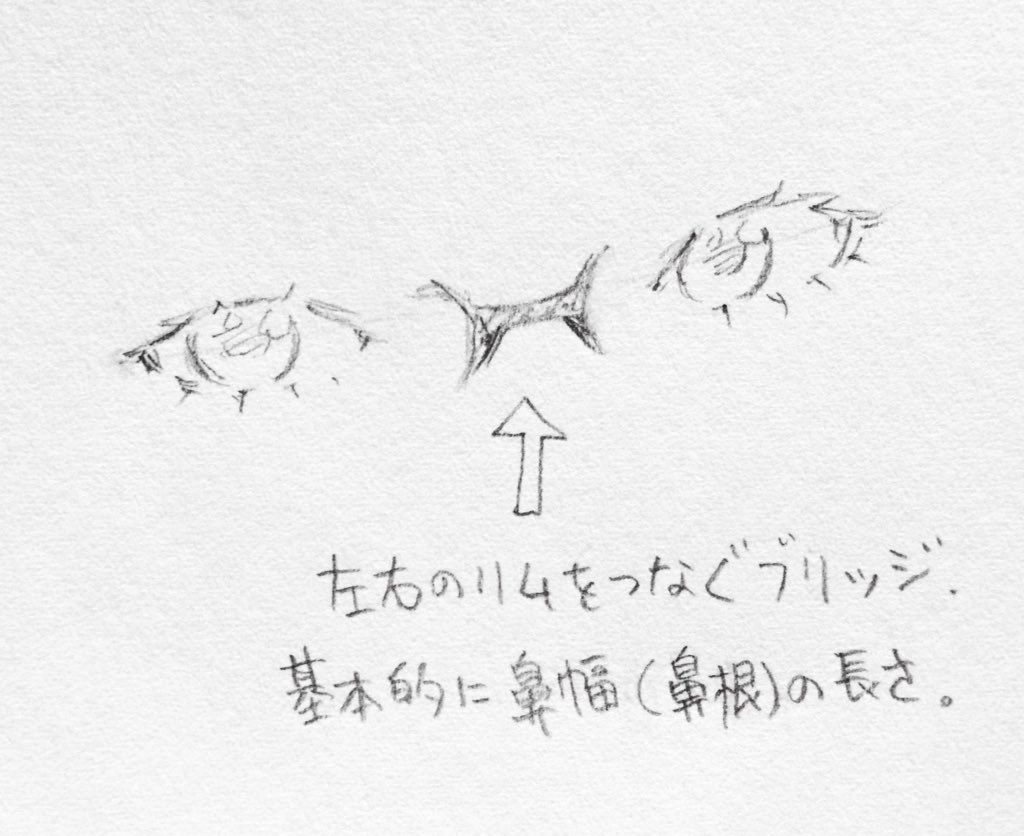 左右のリムをつなぐブリッジ.
基本的に鼻幅(鼻根)の長さ。